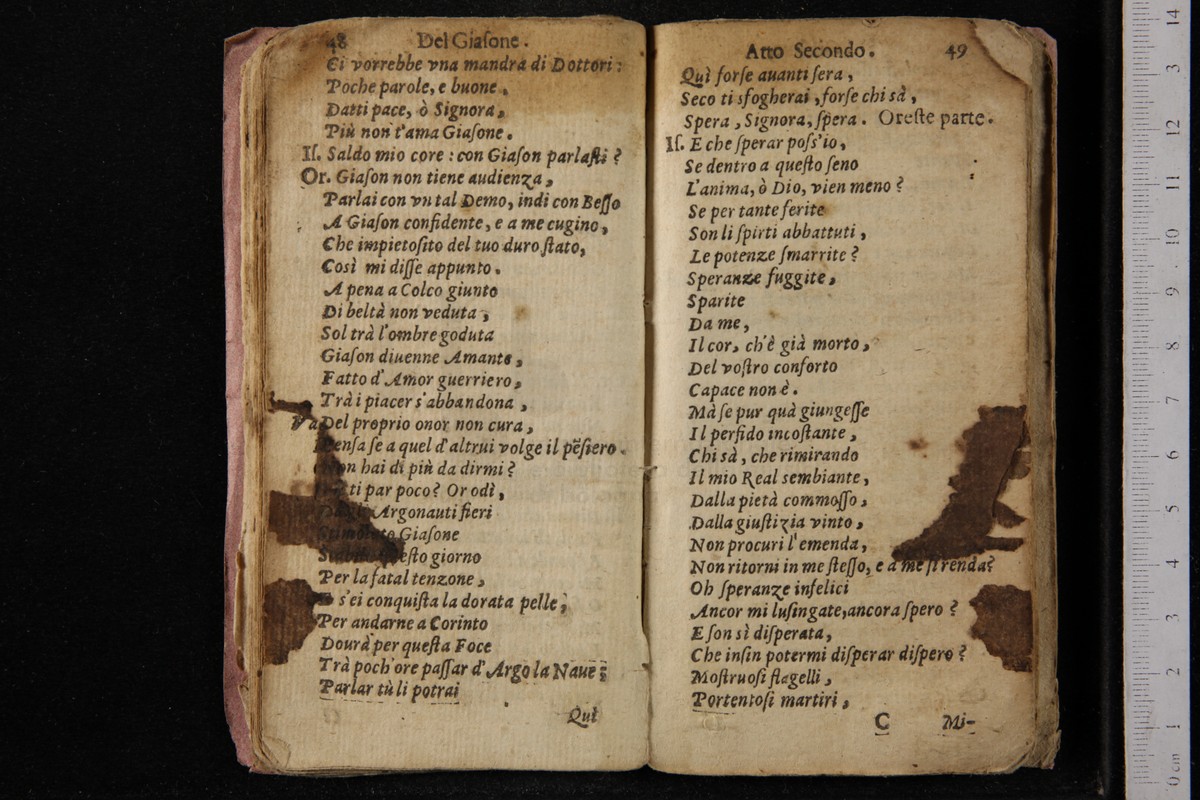 48 Del Giaſone.
Ci vorrebbe vna mandra di Dottori:
Poche parole, e buone.
Datti pace, ò Signora,
Più non t'ama Giaſone.
Iſ. Saldo mio core: con Giaſon parlaſti?
Or. Giaſon non tiene audienza,
Parlai con vn tal Demo, indi con Beſſo
A Giaſon confidente, e a me cugino,
Che impietoſito del tuo duro ſtato,
Così mi diſſe appunto.
A pena a Colco giunto
Di beltà non veduta,
Sol trà l'ombre goduta
Giaſon diuenne Amante,
Fatto d'Amor guerriero,
Trà i piacer s'abbandona,
Del proprio onor non cura,
Penſa ſe a quel d'altrui volge il pẽſiero.
hai di più da dirmi?
ti par poco? Or odì,
Argonauti fieri
Giaſone
giorno
Per la fatal tenzone,
s'ei conquiſta la dorata pelle,
Per andarne a Corinto
Dourà per queſta Foce
Trà poch'ore paſſar d'Argo la Naue:
Parlar tù li potrai
Quì
Atto Secondo. 49
Quì forſe auanti ſera,
Seco ti sfogherai, forſe chi sà,
Spera, Signora, ſpera. Oreſte parte.
Iſ. E che ſperar poſs'io,
Se dentro a queſto ſeno
L'anima, ò Dio, vien meno?
Se per tante ferite
Son li ſpirti abbattuti,
Le potenze ſmarrite?
Speranze fuggite,
Sparite
Da me,
Il cor, ch'è già morto,
Del voſtro conforto
Capace non è.
Mà ſe pur quà giungeſſe
Il perfido incoſtante,
Chi sà, che rimirando
Il mio Real sembiante,
Dalla pietà commoſſo,
Dalla giuſtizia vinto,
Non procuri l'emenda,
Non ritorni in me ſteſſo, e a me ſi renda?
Oh ſperanze infelici
Ancor mi luſingate, ancora ſpero?
E ſon sì diſperata,
Che inſin potermi diſperar diſpero?
Moſtruoſi flagelli,
Portentoſi martiri,
C Mi-
14
3
12
11
10
9
8
7
6
5
4
3
2
1
0 cm